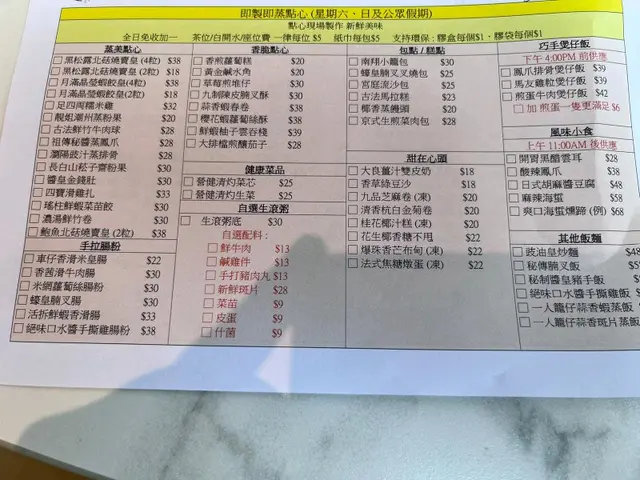 即製即蒸點心 (星期六、日及公眾假期)
點心現場製作 新鮮美味
全日免收加一 茶位/白開水/座位費 一律每位 $5 紙巾每包$5 支持環保:膠盒每個$1、膠袋每個$1
蒸美點心
黑松露北菇燒賣皇 (4粒) $38
黑松露北菇燒賣皇 (2粒) $18
月滿晶瑩蝦餃皇(4粒) $38
月滿晶瑩蝦餃皇(2粒) $18
足四両糯米雞 $32
靚姐潮州蒸粉果 $20
古法鮮竹牛肉球 $28
祖傳秘醬蒸鳳爪 $28
瀏陽豉汁蒸排骨 $28
長白山松子齋粉果 $30
醬皇金錢肚 $30
四寶滑雞扎 $33
瑤柱鮮蝦菜苗餃 $30
濃湯鮮竹卷 $30
鮑魚北菇燒賣皇(2粒) $38
手拉腸粉
車仔香滑米皇腸 $22
香茜滑牛肉腸 $30
米網蘿蔔絲腸粉 $30
蠔皇腩叉腸 $30
活拆鮮蝦香滑腸 $33
絕味口水醬手撕雞腸粉 $38
香脆點心
香煎蘿蔔糕 $20
黃金鹹水角 $20
草莓煎堆仔 $30
九制陳皮腩叉酥 $30
蒜香蝦春卷 $38
櫻花蝦蘿蔔絲酥 $38
鮮蝦柚子雲吞棧 $39
大排檔煎釀茄子 $28
健康菜品
營健清灼菜芯 $25
營健清灼生菜 $25
自選生滾粥
生滾粥底 $30
自選配料:
鮮牛肉 $13
鹹雞件 $13
手打豬肉丸 $13
新鮮斑片 $28
菜苗 $9
皮蛋 $9
什菌 $9
包點 / 糕點
南翔小籠包 $30
蠔皇腩叉叉燒包 $25
宮庭流沙包 $25
古法馬拉糕 $23
椰香蒸饅頭 $20
京式生煎菜肉包 $28
甜在心頭
大良薑汁雙皮奶 $18
香草綠豆沙 $18
九品芝麻卷 (凍) $20
清香杭白金菊卷 $20
桂花椰汁糕 (凍) $20
花生椰香糖不甩 $22
爆珠香芒布甸 (凍) $22
法式焦糖燉蛋 (凍) $22
巧手煲仔飯
下午 4:00PM 前供應
鳳爪排骨煲仔飯 $39
馬友雞粒煲仔飯 $39
煎蛋牛肉煲仔飯 $42
加 煎蛋一隻更滿足 $6
風味小食
上午 11:00AM 後供應
開胃黑醋雲耳 $28
酸辣鳳爪 $38
日式胡麻醬豆腐 $48
麻辣海蜇 $58
爽口海蜇燻蹄 (例) $68
其他飯麵
豉油皇炒麵 $48
秘傳腩叉飯
秘制醬皇豬手飯
絕味口水醬手撕雞飯
一人龍仔蒜香蝦蒸飯
一人龍仔蒜香斑片蒸飯